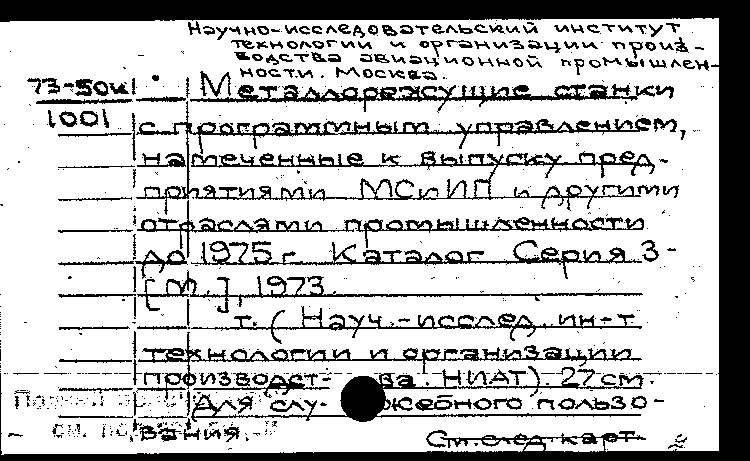 Научно-исследовательский институт
технологии и организации произ-
водства авиационной промышлен-
ности. Москва.
73-50и
1001
Металлорежущие станки
с программным управлением,
намеченные к выпуску пред-
приятиями МСиИП и другими
отраслями промышленности
до 1975 г. Каталог Серия 3-
[М.], 1973.
т. (Науч.-исслед. ин-т
технологии и организации
производст- ва. НИАТ). 27 см.
Для слу- жебного пользо-
вания.
см.
См. след. карт.